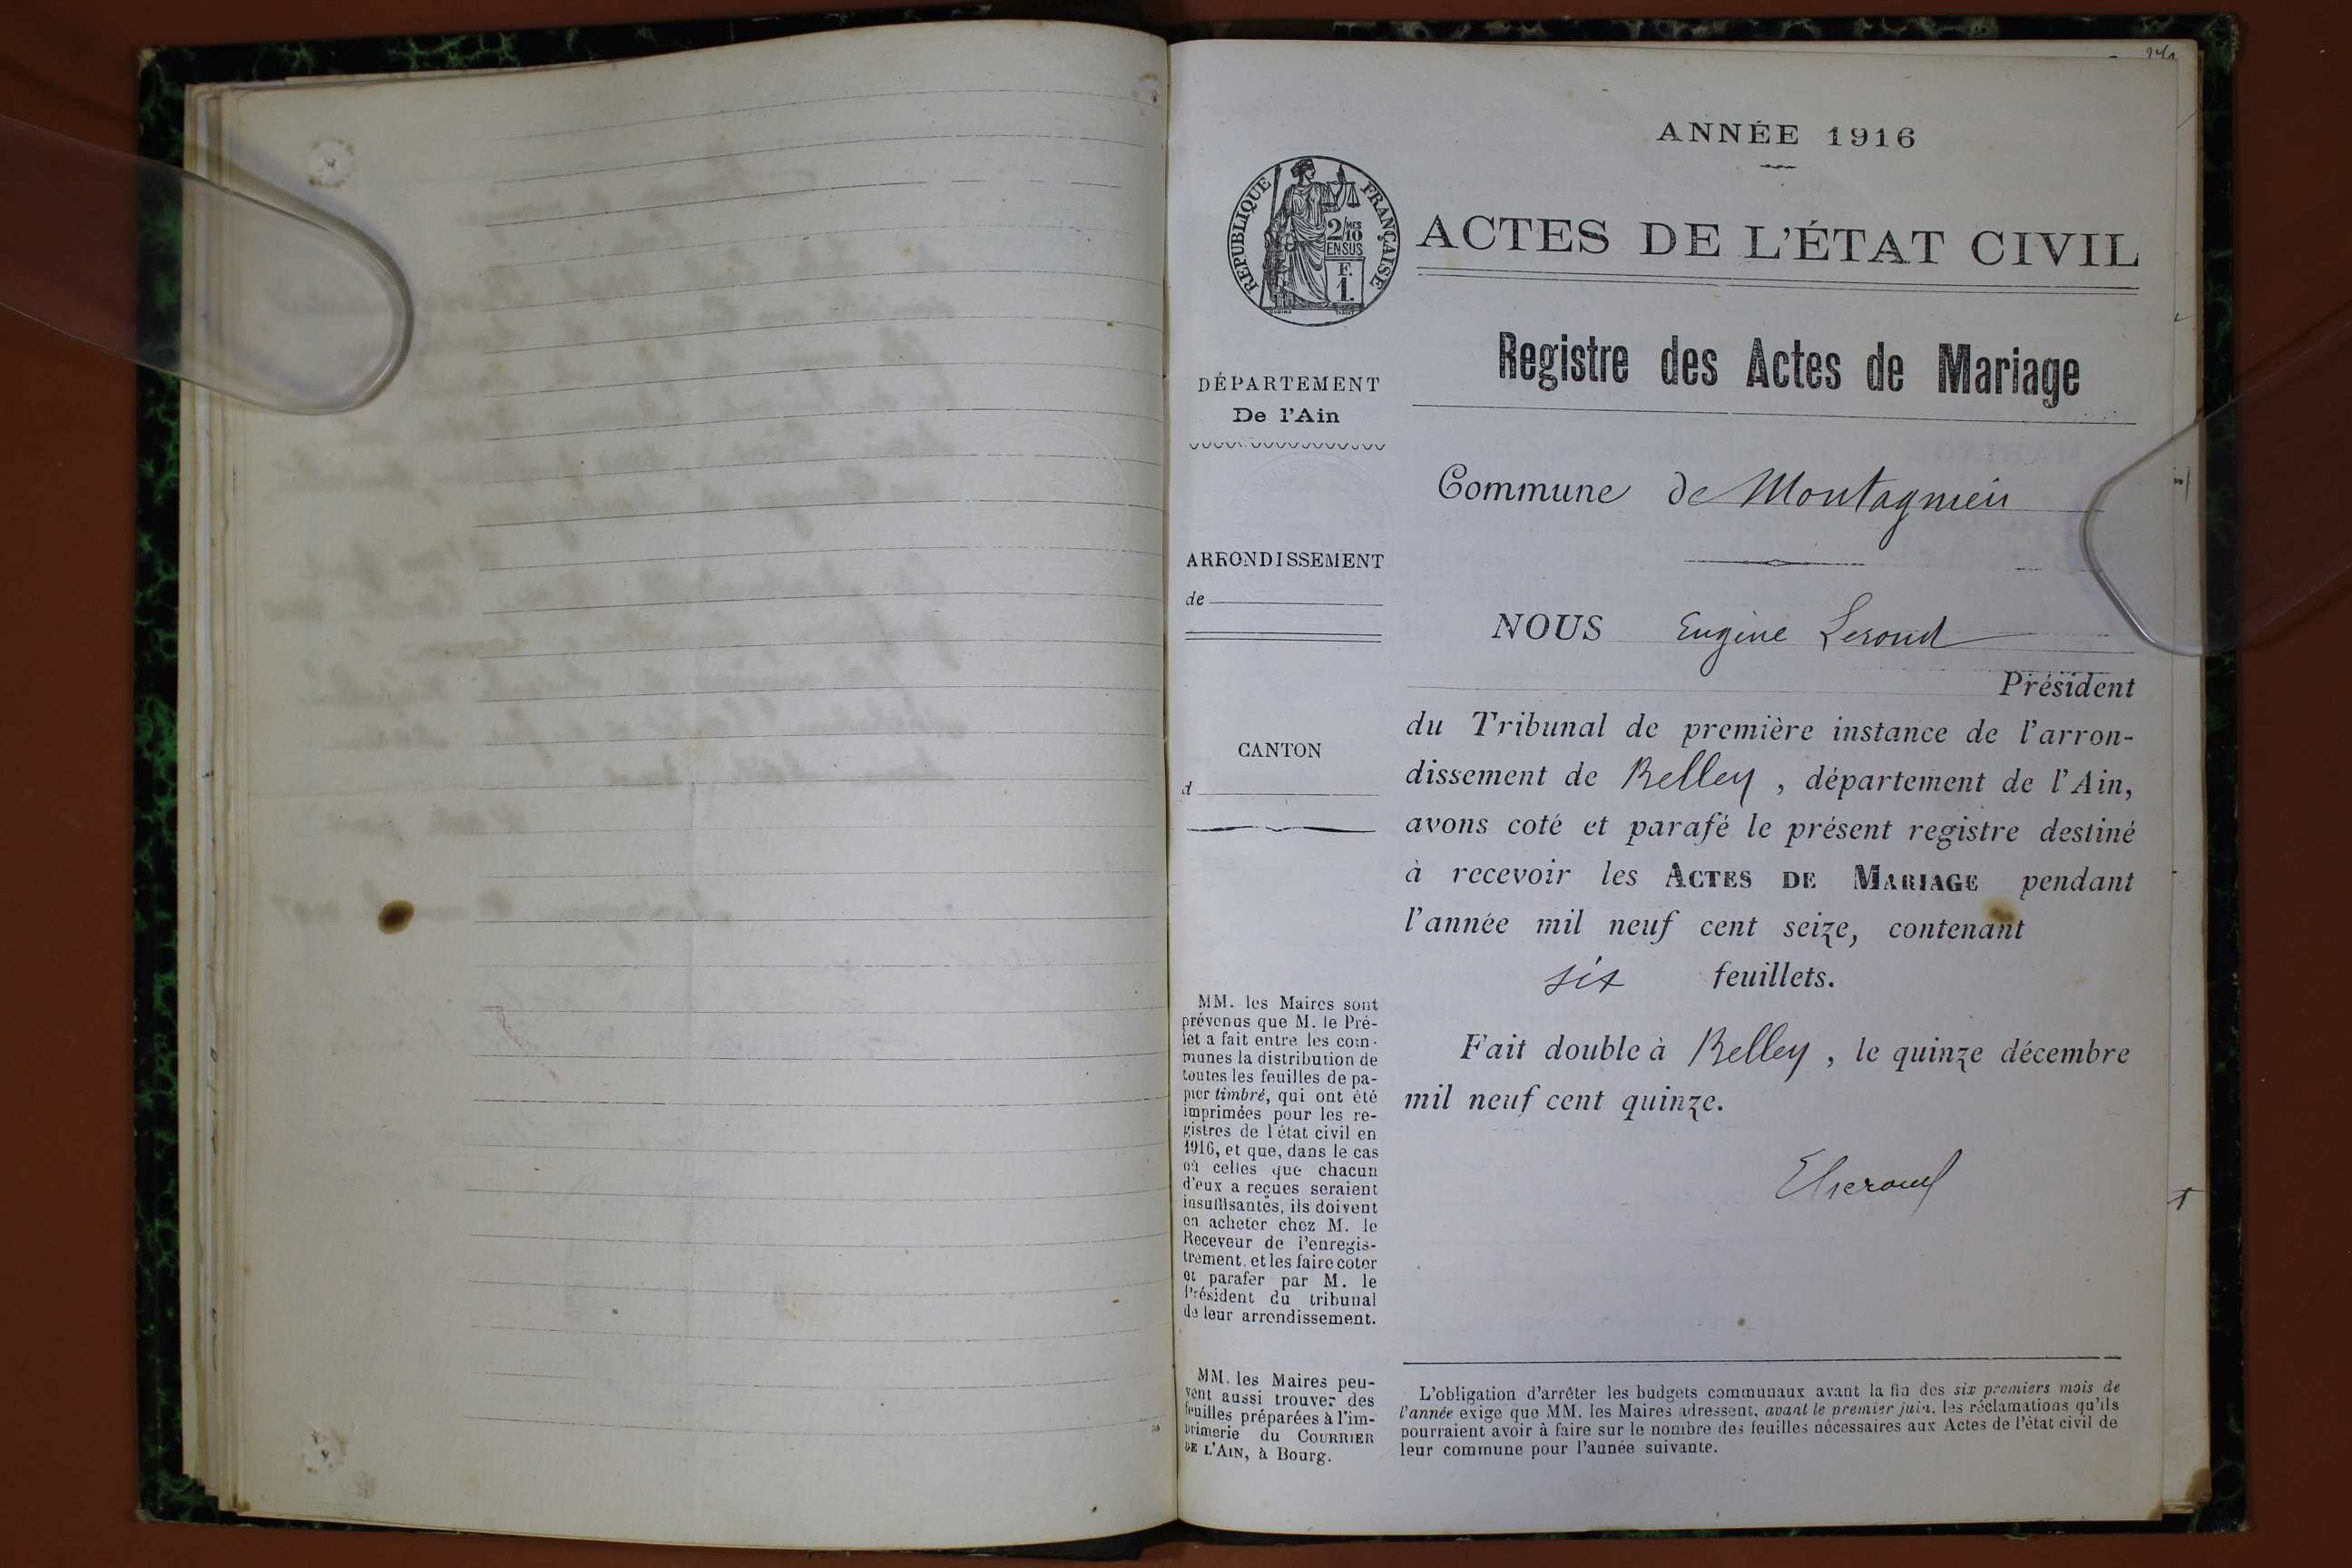 ANNÉE 1916
RÉPUBLIQUE FRANÇAISE
2/10 MES
EN SUS
F.
1.
ACTES DE L'ÉTAT CIVIL
Registre des Actes de Mariage
DÉPARTEMENT
De l'Ain
Commune de Montagnieu
ARRONDISSEMENT
de
CANTON
d
NOUS Eugène Leroud
Président
du Tribunal de première instance de l'arron-
dissement de Belley, département de l'Ain,
avons coté et parafé le présent registre destiné
à recevoir les ACTES DE MARIAGE pendant
l'année mil neuf cent seize, contenant
six feuillets.
Fait double à Belley, le quinze décembre
mil neuf cent quinze.
MM. les Maires sont
prévenus que M. le Pré-
fet a fait entre les com-
munes la distribution de
toutes les feuilles de pa-
pier timbré, qui ont été
imprimées pour les re-
gistres de l'état civil en
1916, et que, dans le cas
où celles que chacun
d'eux a reçues seraient
insuffisantes, ils doivent
en acheter chez M. le
Receveur de l'enregis-
trement, et les faire coter
et parafer par M. le
Président du tribunal
de leur arrondissement.
MM. les Maires peu-
vent aussi trouver des
feuilles préparées à l'im-
primerie du COURRIER
DE L'AIN, à Bourg.
L'obligation d'arrêter les budgets communaux avant la fin des six premiers mois de
l'année exige que MM. les Maires adressent, avant le premier juin, les réclamations qu'ils
pourraient avoir à faire sur le nombre des feuilles nécessaires aux Actes de l'état civil de
leur commune pour l'année suivante.